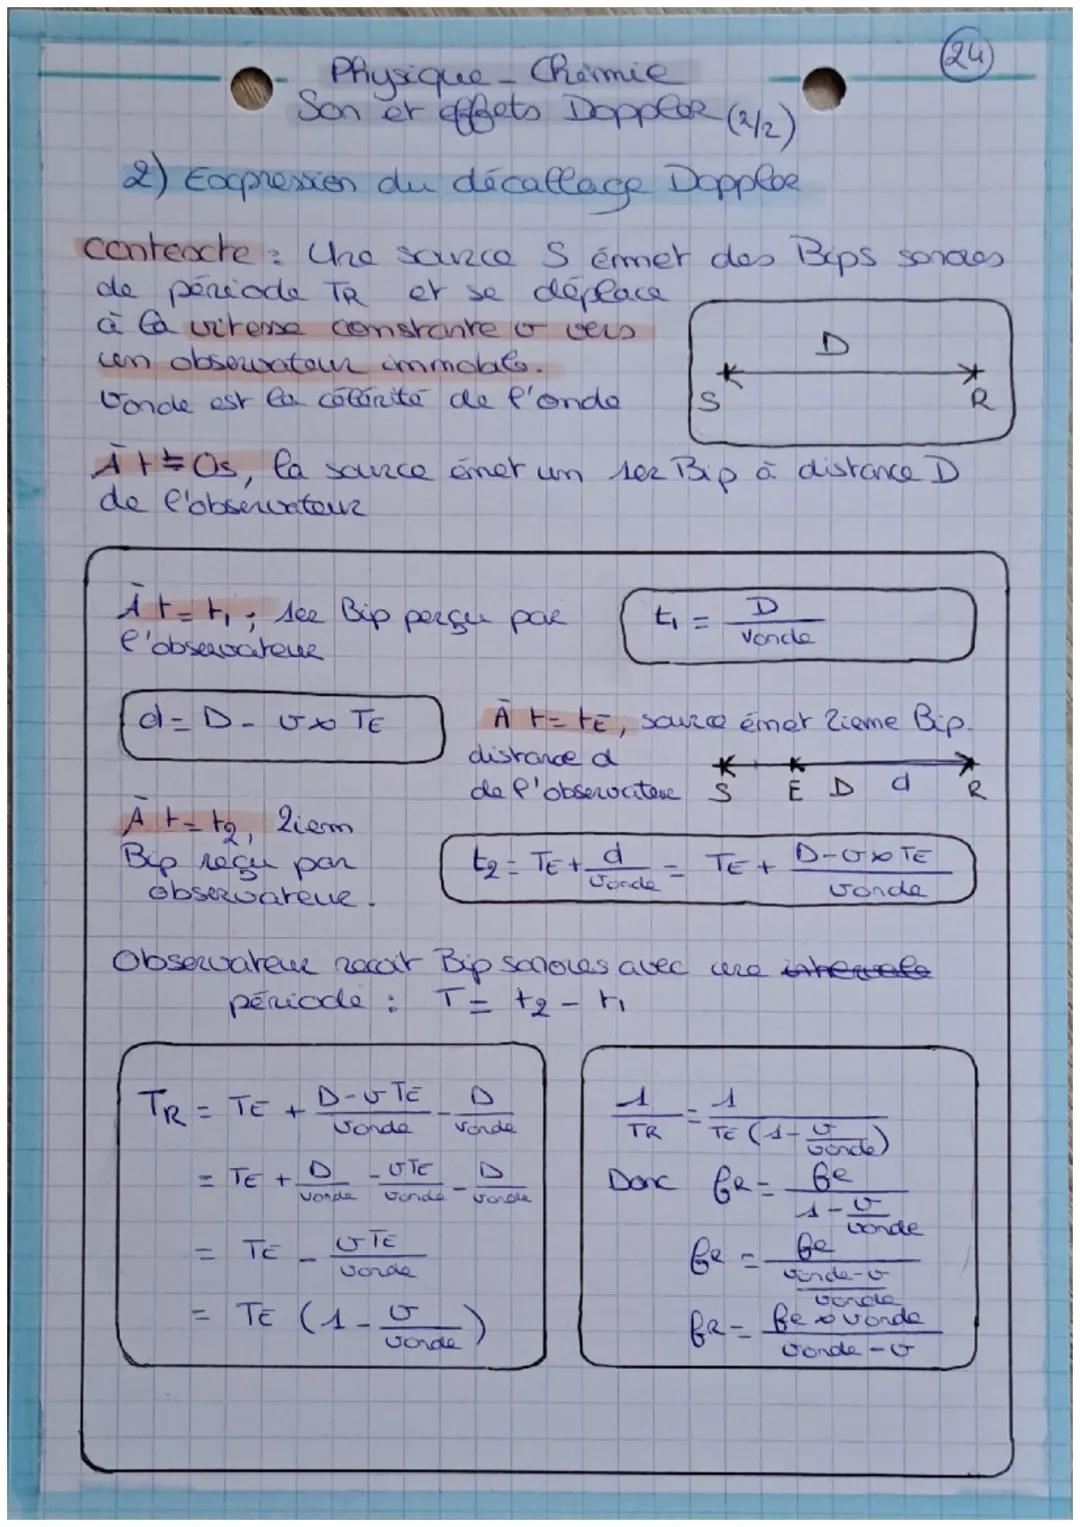 24
Physique - Chimie
Son et effets Doppler (2/2)
2) Expression du décallage Doppler
contexte : Une source S émet des Bips sonores
de période TR et se déplace
à la vitesse constante v vers
un observateur immobile.
D
S R
Vonde est la célérité de l'onde
À t = 0s, la source émet un 1er Bip à distance D
de l'observateur
À t = t₁ ; 1er Bip perçu par
l'observateur
t₁ = D / Vonde
d = D - v × TE
À t = tE, source émet 2ieme Bip.
distance d
de l'observateur
S E D d R
À t = t₂, 2iem
Bip reçu par
observateur.
t₂ = TE + d / vonde = TE + (D - v × TE) / vonde
Observateur reçoit Bip sonores avec une intervale
période : T = t₂ - t₁
TR = TE + (D - v TE) / vonde - D / vonde
= TE + D / vonde - vTE / vonde - D / vonde
= TE - vTE / vonde
= TE (1 - v / vonde)
1 / TR = 1 / TE (1 - v / vonde)
Donc fR = fe / (1 - v / vonde)
fR = fe / ((vonde - v) / vonde)
fR = (fe × vonde) / (vonde - v)